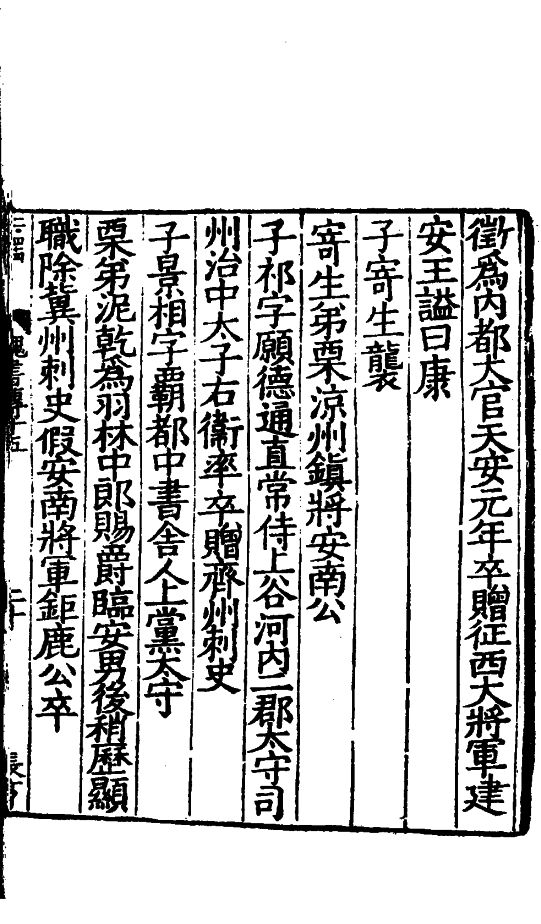 徵爲内都大官天安元年卒贈征西大將軍建
安王謚曰康
子寄生襲
寄生弟栗涼州鎮將安南公
子祁字願德通直常侍上谷河内二郡太守司
州治中太子右衞率卒贈齊州刺史
子景相字霸都中書舍人上黨太守
栗弟泥乾爲羽林中郎賜爵臨安男後稍歷顯
職除冀州刺史假安南將軍鉅鹿公卒